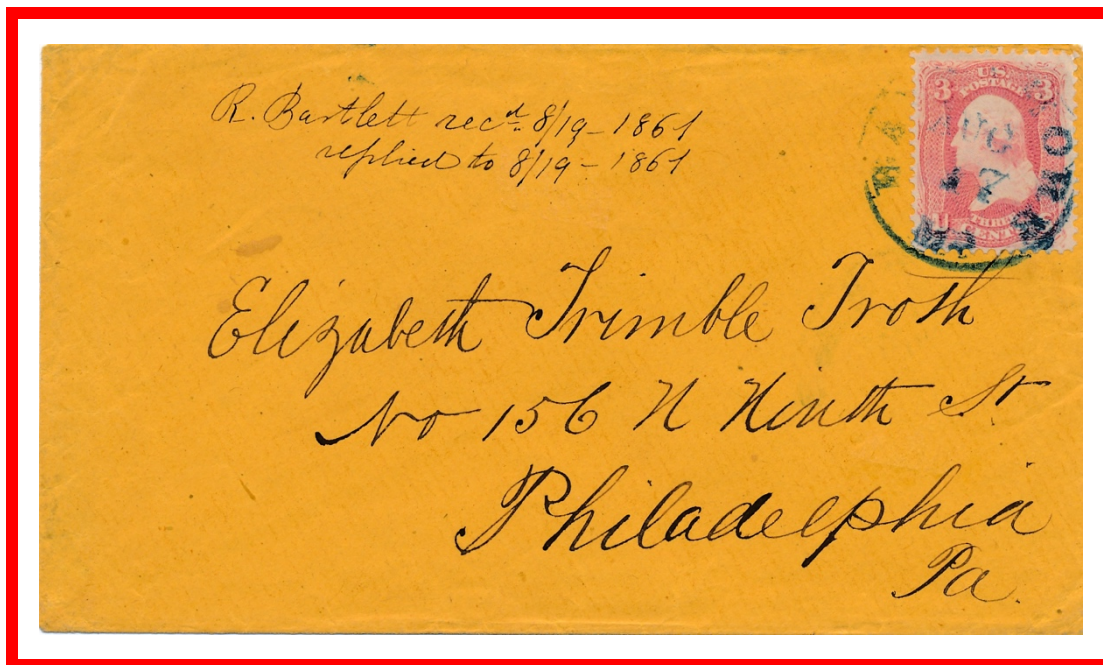 R. Bartlett recd. 8/19 – 1861
replied to 8/19 – 1861
U.S. POSTAGE
3 3
THREE CENTS
U
AUG
17
Md
Elizabeth Trimble Troth
No 156 N Ninth St.
Philadelphia
Pa.